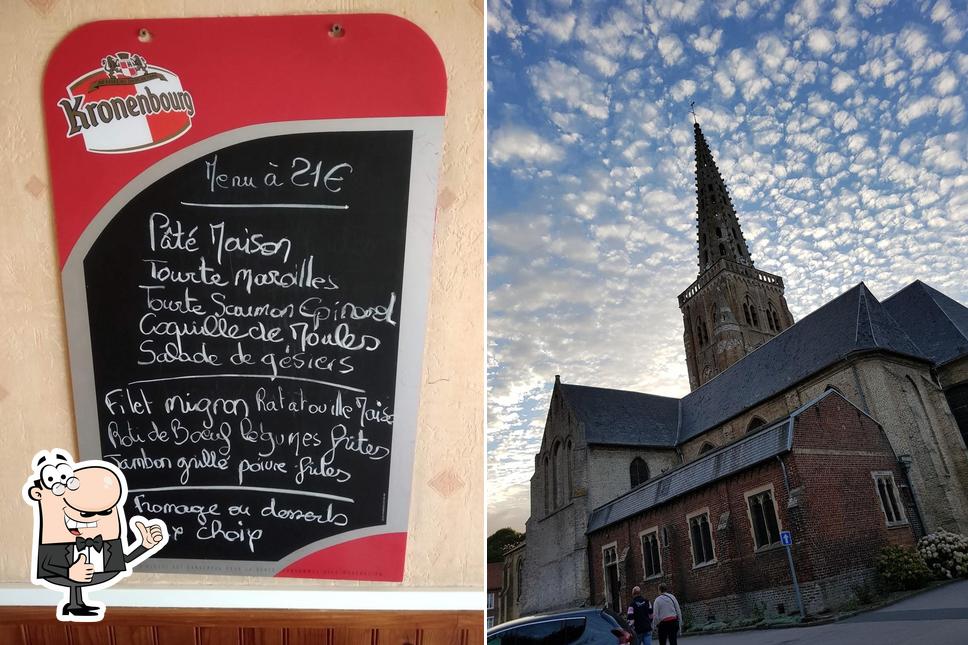 Kronenbourg
Menu à 21€
Pâté Maison
Tourte Maroilles
Tourte Saumon Epinard
Coquille de Moules
Salade de gésiers
Filet mignon Ratatouille Maiso
Roti de Boeuf légumes frites
Jambon grillé poivre frites
fromage ou desserts
choix